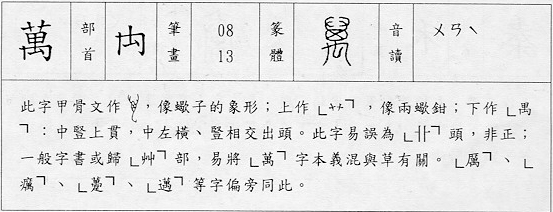 萬 部首 禸 筆畫 08 13 篆體 萬 音讀 ㄨㄢˋ
此字甲骨文作,像蠍子的象形;上作「艹」,像兩蠍鉗;下作「禺
」:中豎上貫,中左橫、豎相交出頭。此字易誤為「卝」頭,非正;
一般字書或歸「艸」部,易將「萬」字本義混與草有關。「厲」、「
癘」、「躉」、「邁」等字偏旁同此。